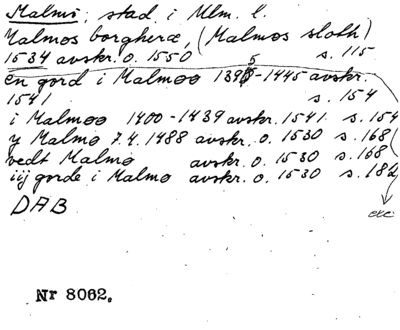 Malmö; stad i Mlm. l.
Malmos borgheræ, (Malmos sloth)
1534 avskr. o. 1550 s. 115
en gord i Malmoo 1395-1445 avskr.
1541 s. 154
i Malmoo 1400-1439 avskr. 1541. s. 154
y Malmo 7.4. 1488 avskr. o. 1530 s. 168
vedt Malmo avskr. o. 1530 s. 168
iij gorde i Malmo avskr. o. 1530 s. 182
DAB
Nr 8062.